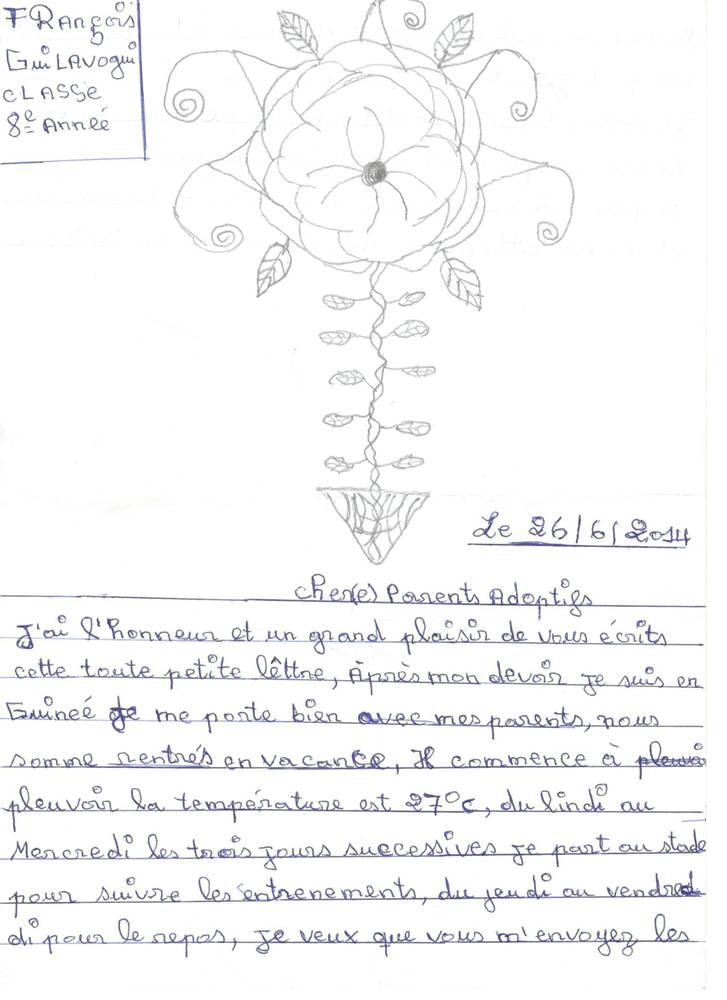 FRançois
GuiLAvogui
CLASSe
8e Année
Le 26/6/2014
cher(e) Parents Adoptifs
J'ai l'honneur et un grand plaisir de vous écrits
cette toute petite lêttre, Après mon devoir je suis en
Guineé Je me porte bien avec mes parents, nous
somme rentrés en vacance, Il commence à pleuvoi
pleuvoir la température est 27°c, du lindi au
Mercredi les trois jours successives je part au stade
pour suivre les entrenements, du jeudi au vendred
di pour le repos, je veux que vous m'envoyez les